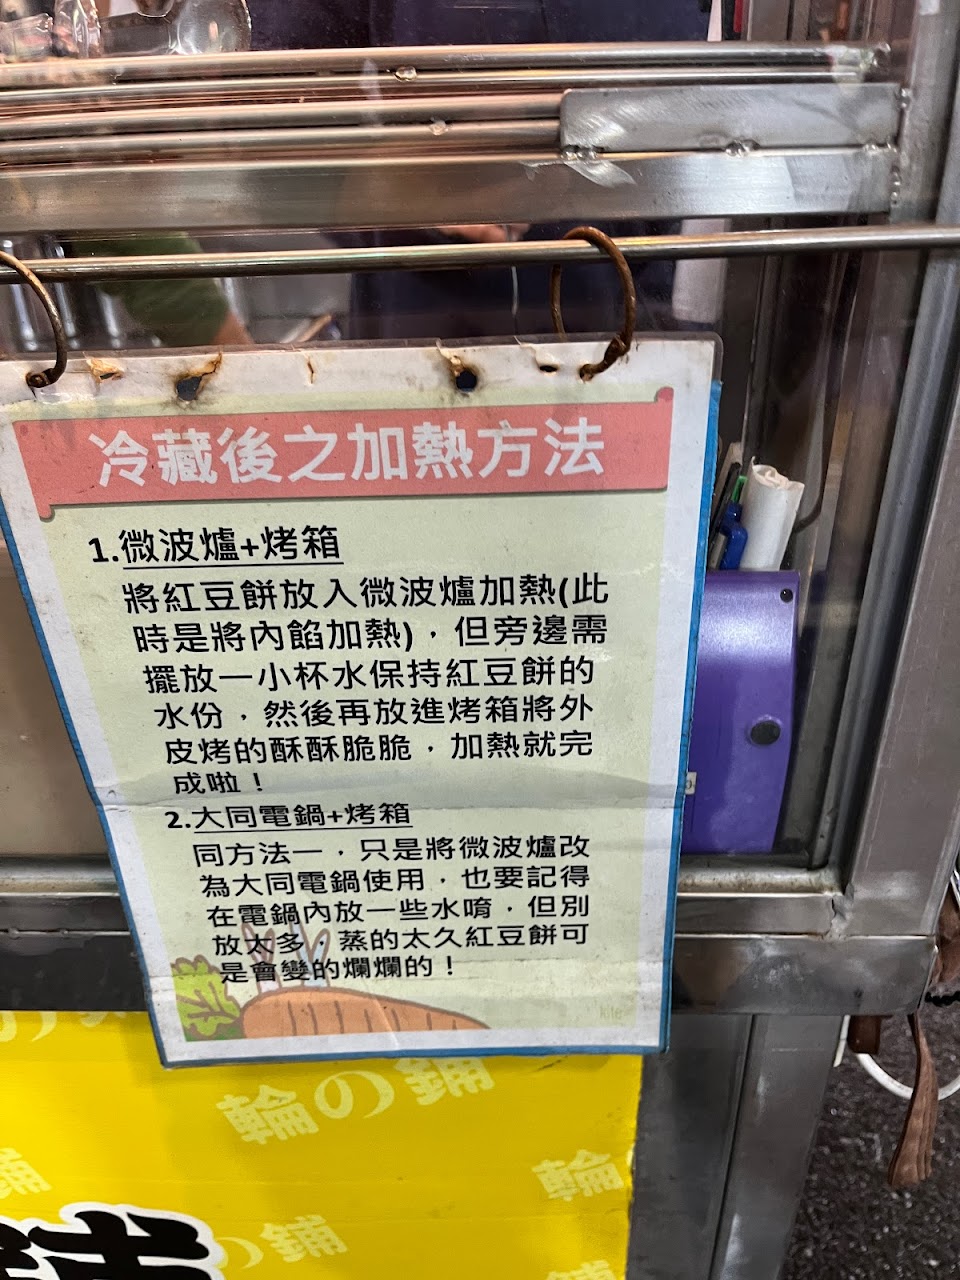 冷藏後之加熱方法
1.微波爐+烤箱
將紅豆餅放入微波爐加熱(此
時是將內餡加熱)，但旁邊需
擺放一小杯水保持紅豆餅的
水份，然後再放進烤箱將外
皮烤的酥酥脆脆，加熱就完
成啦！
2.大同電鍋+烤箱
同方法一，只是將微波爐改
為大同電鍋使用，也要記得
在電鍋內放一些水唷，但別
放太多，蒸的太久紅豆餅可
是會變的爛爛的！
輪の鋪
輪
の鋪